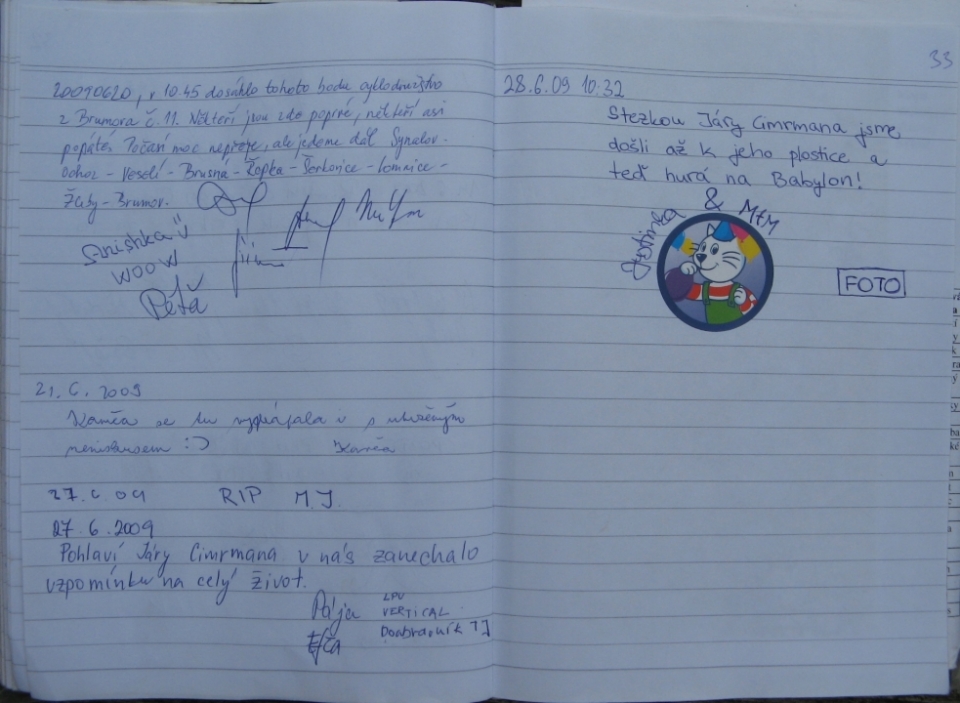 20090620, v 10.45 dosáhlo tohoto bodu cyklodružstvo
z Brumova č. 11. Někteří jsou zde poprvé, někteří asi
popáté. Počasí moc nepřeje, ale jedeme dál Synalov-
Ochoz - Veselí - Brusná - Žopka - Šerkovice - Lomnice -
Žleby - Brumov.
Anishka
WOOW
Péťa
21. 6. 2009
Kamča se tu vyškrábala i s utrženým
meniskusem :-)
Kamča
27. 6 09 RIP M.J.
27. 6. 2009
Pohlaví Járy Cimrmana v nás zanechalo
vzpomínku na celý život.
Pája
LPU
VERTICAL
Doubravník TJ
33
28.6.09 10:32
Stezkou Járy Cimrmana jsme
došli až k jeho plostice a
teď hurá na Babylon!
& MfM
FOTO